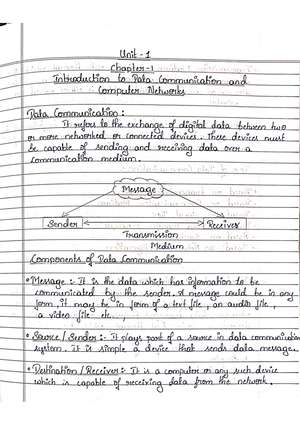 Unit - 1
Chapter - 1
Introduction to Data Communication and
Computer Networks
Data Communication :
It refers to the exchange of digital data between two
or more networked or connected devices. These devices must
be capable of sending and receiving data over a
communication medium.
Message
Sender
Receiver
Transmission
Medium
Components of Data Communication
• Message :- It is the data which has information to be
communicated by the sender. A message could be in any
form, it may be in form of a text file, an audio file,
a video file etc..,
• Source / Sender :- It plays part of a source in data communication
system. It is simple a device that sends data message.
• Destination / Receiver :- It is a computer or any such device
which is capable of receiving data from the network.